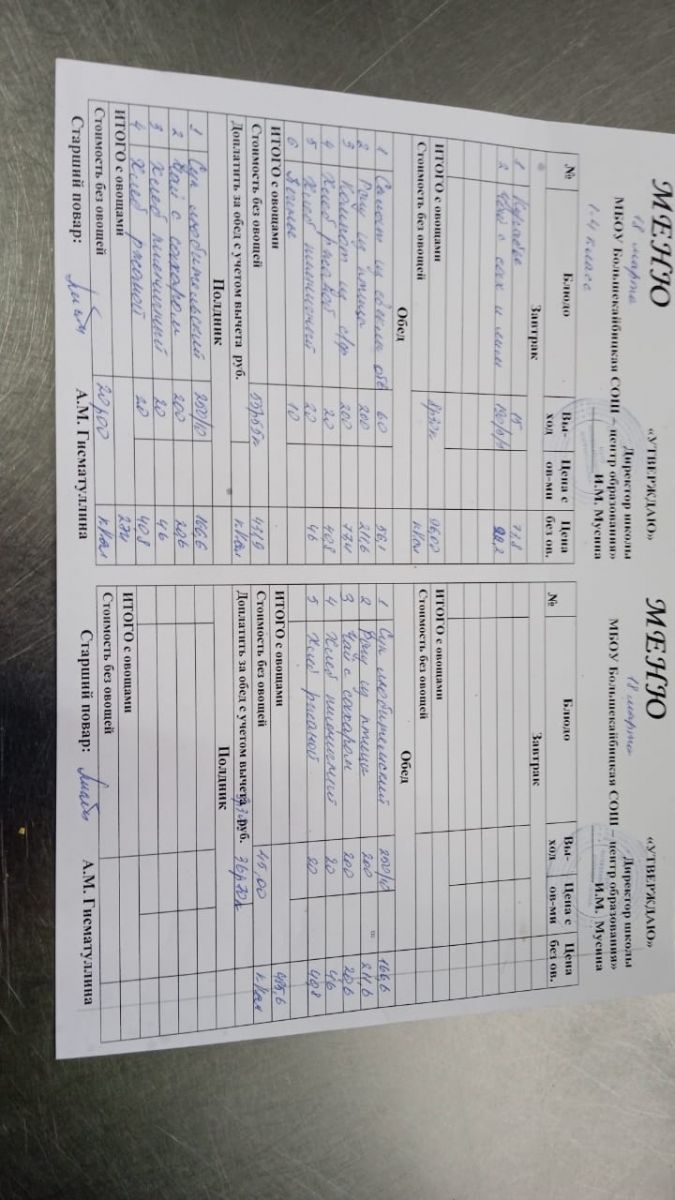 МЕНЮ
18 марта
«УТВЕРЖДАЮ»
Директор школы
МБОУ Большекайбицкая СОШ – центр образования»
И.М. Мусина
1-4 класс
№ Блюдо Вы-ход Цена с ов-ми Цена без ов.
Завтрак
1 15 71,8
2 Чай с сах и
ИТОГО с овощами 96,00
Стоимость без овощей ккал
Обед
1 Салат из свеклы 60 56,1
2 Рагу из птицы 200 211,6
3 Компот из с/ф 200 77,4
4 Хлеб ржаной 20 40,8
5 Хлеб пшеничный 20 46
6 10
ИТОГО с овощами
Стоимость без овощей 431,9
Доплатить за обед с учетом вычета руб. ккал
Полдник
1 Суп любительский 250/10 166,6
2 Чай с сахаром 200 20,6
3 Хлеб пшеничный 20 46
4 Хлеб ржаной 20 40,8
ИТОГО с овощами 274
Стоимость без овощей 20р00 ккал
Старший повар: А.М. Гисматуллина
МЕНЮ
18 марта
«УТВЕРЖДАЮ»
Директор школы
МБОУ Большекайбицкая СОШ – центр образования»
И.М. Мусина
№ Блюдо Вы-ход Цена с ов-ми Цена без ов.
Завтрак
ИТОГО с овощами
Стоимость без овощей
Обед
1 Суп любительский 250/10 166,6
2 Рагу из птицы 200 211,6
3 Чай с сахаром 200 20,6
4 Хлеб пшеничный 20 46
5 Хлеб ржаной 20 40,8
ИТОГО с овощами 485,6
Стоимость без овощей 45,00 ккал
Доплатить за обед с учетом вычета руб. 36р70к
Полдник
ИТОГО с овощами
Стоимость без овощей
Старший повар: А.М. Гисматуллина